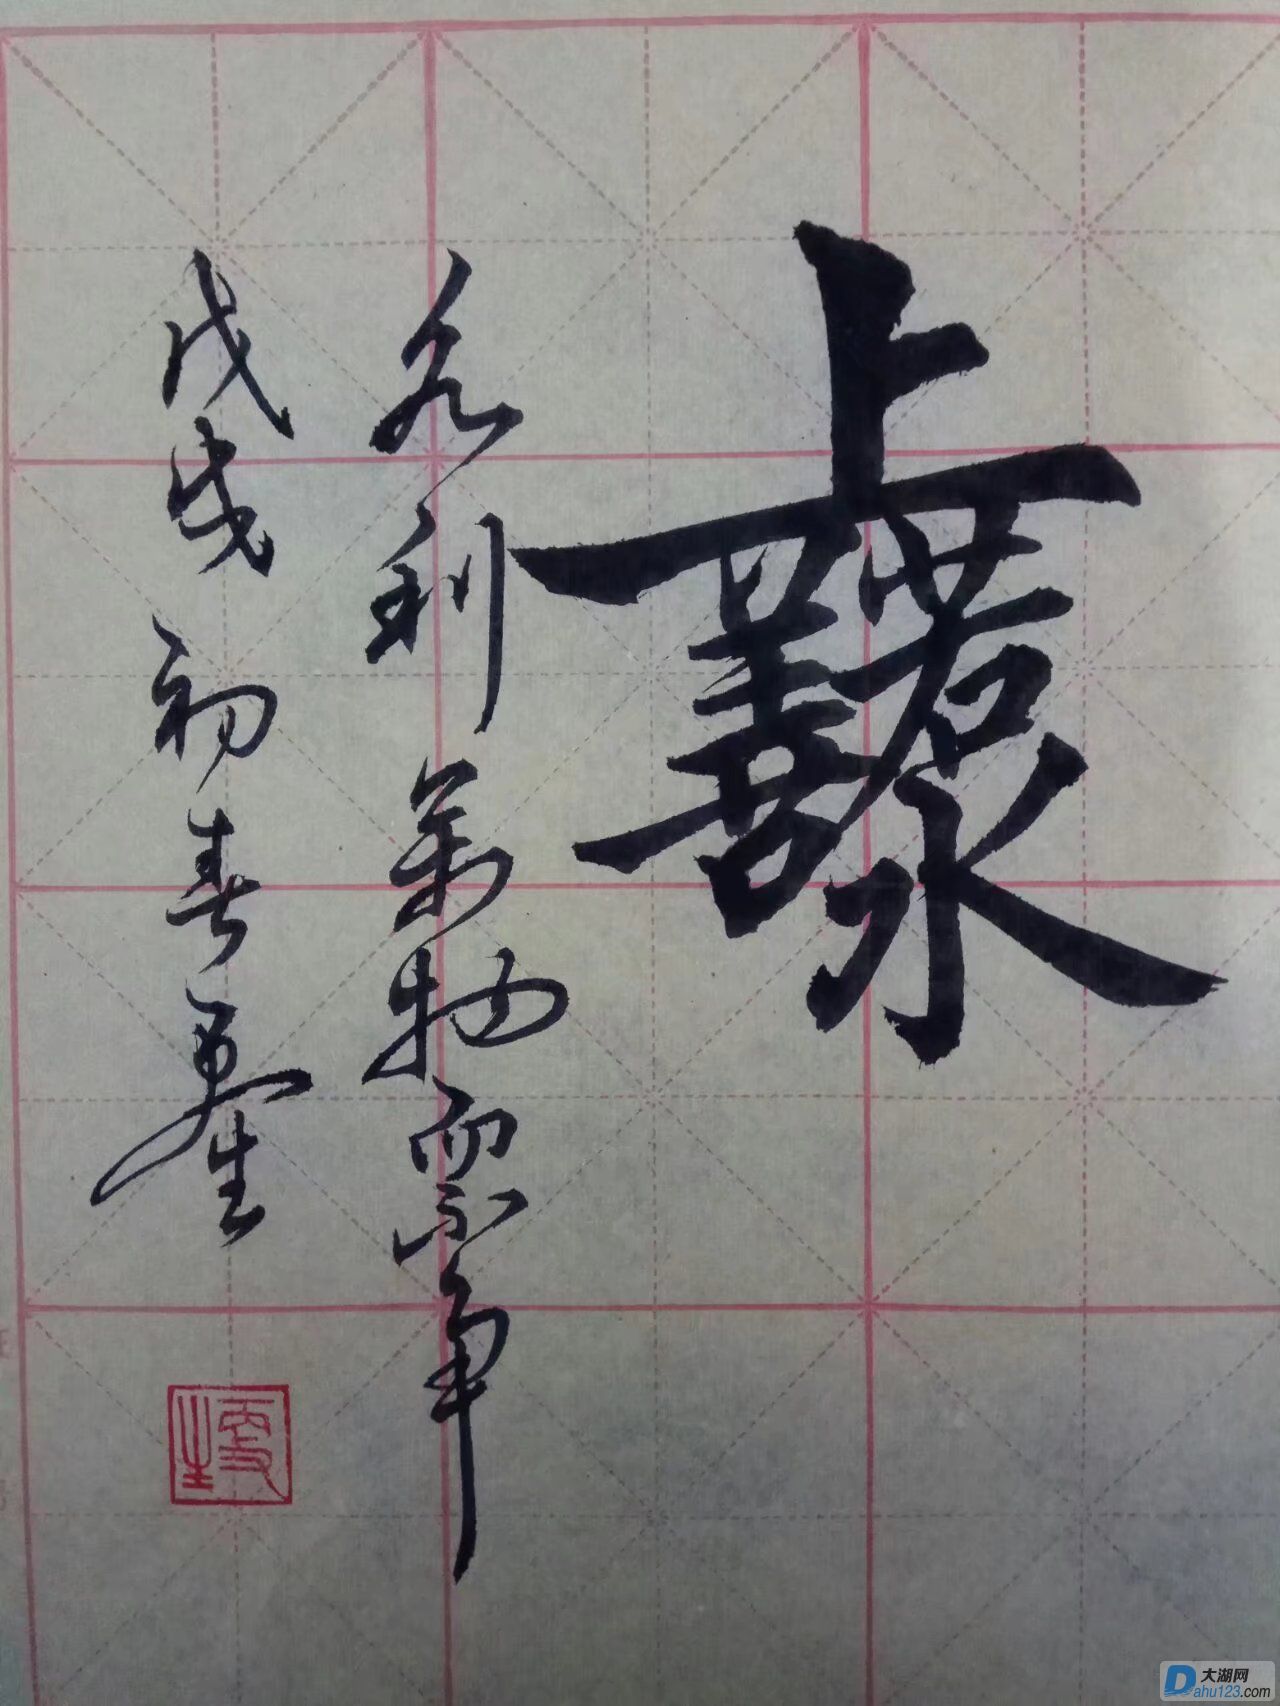 上善若水
利萬物而不争
戊戌初春更生
更生
大湖网
Dahu123.com